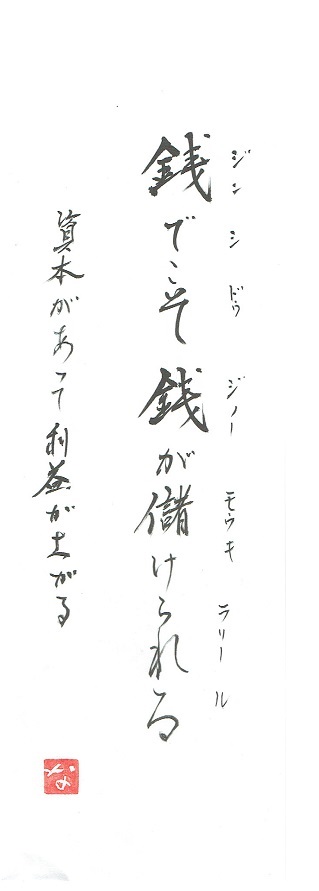 ジンシ ドゥ ジノー モウキ ラリール
銭でこそ銭が儲けられる
資本があって利益が上がる
な